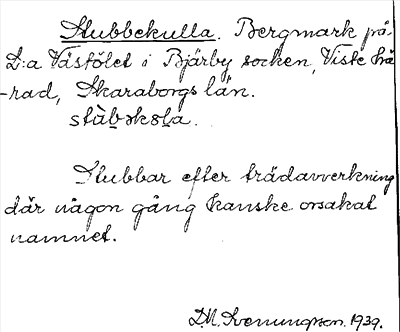 Stubbekulla. Bergmark på
L:a Västölet i Bjärby socken, Viste hä
-rad, Skaraborgs län.
stùb̬əkɷl̬a.
Stubbar efter trädavverkning
där någon gång kanske orsakat
namnet.
D.M. Svenungson. 1939.